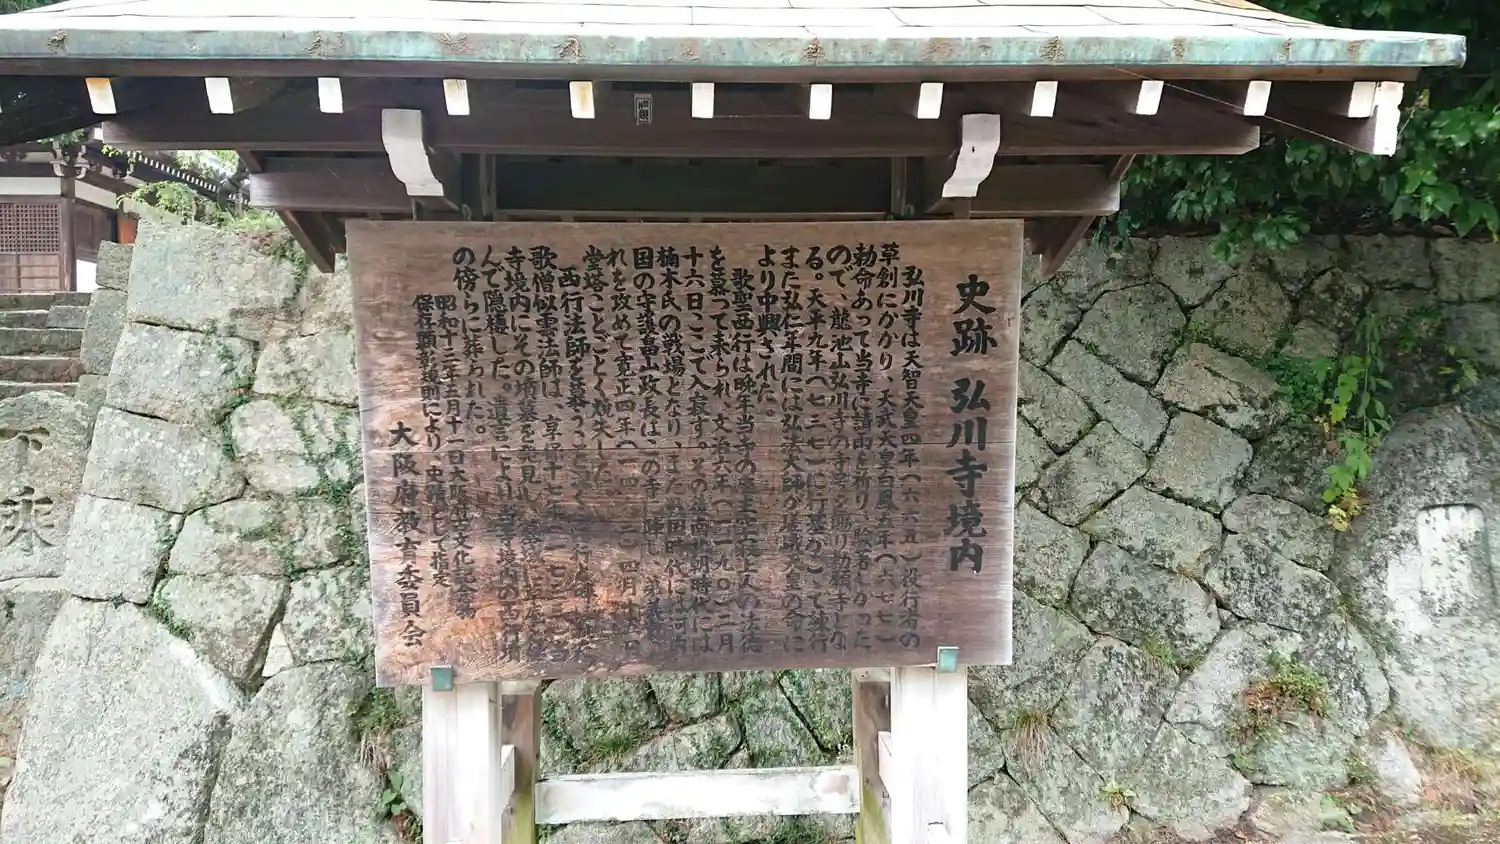 史跡 弘川寺境内
弘川寺は天智天皇四年(六六五)役行者の
草創にかかり、天武天皇白鳳五年(六七七)
勅命あって当寺に請雨を祈り、験著しかった
ので、龍池山弘川寺の寺号を賜り勅願寺とな
る。天平九年(七三七)に行基が、て練行
また弘仁年間には弘法大師が嵯峨天皇の命に
より中興された。
歌聖西行は晩年当寺の座主空寂上人の法徳
を慕って来られ、文治六年(一一九〇)二月
十六日ここで入寂す。その後南北朝時代には
楠木氏の戦場となり、また戦国時代には河内
国の守護畠山政長はこの寺に陣し、弟義
れを攻めて寛正四年(一四六三)四月十五日
堂塔ことごとく焼失した。
西行法師を慕うことごとく
歌僧似雲法師は、享保十七年(一七三二)
寺境内にその墳墓を発見し
んで隠棲した。遺言により当寺境内の西行墳
の傍らに葬られた。
昭和十三年五月十一日大阪府文化財
保存顕彰規則により 史跡として指定
大阪府教育委員会
下乘